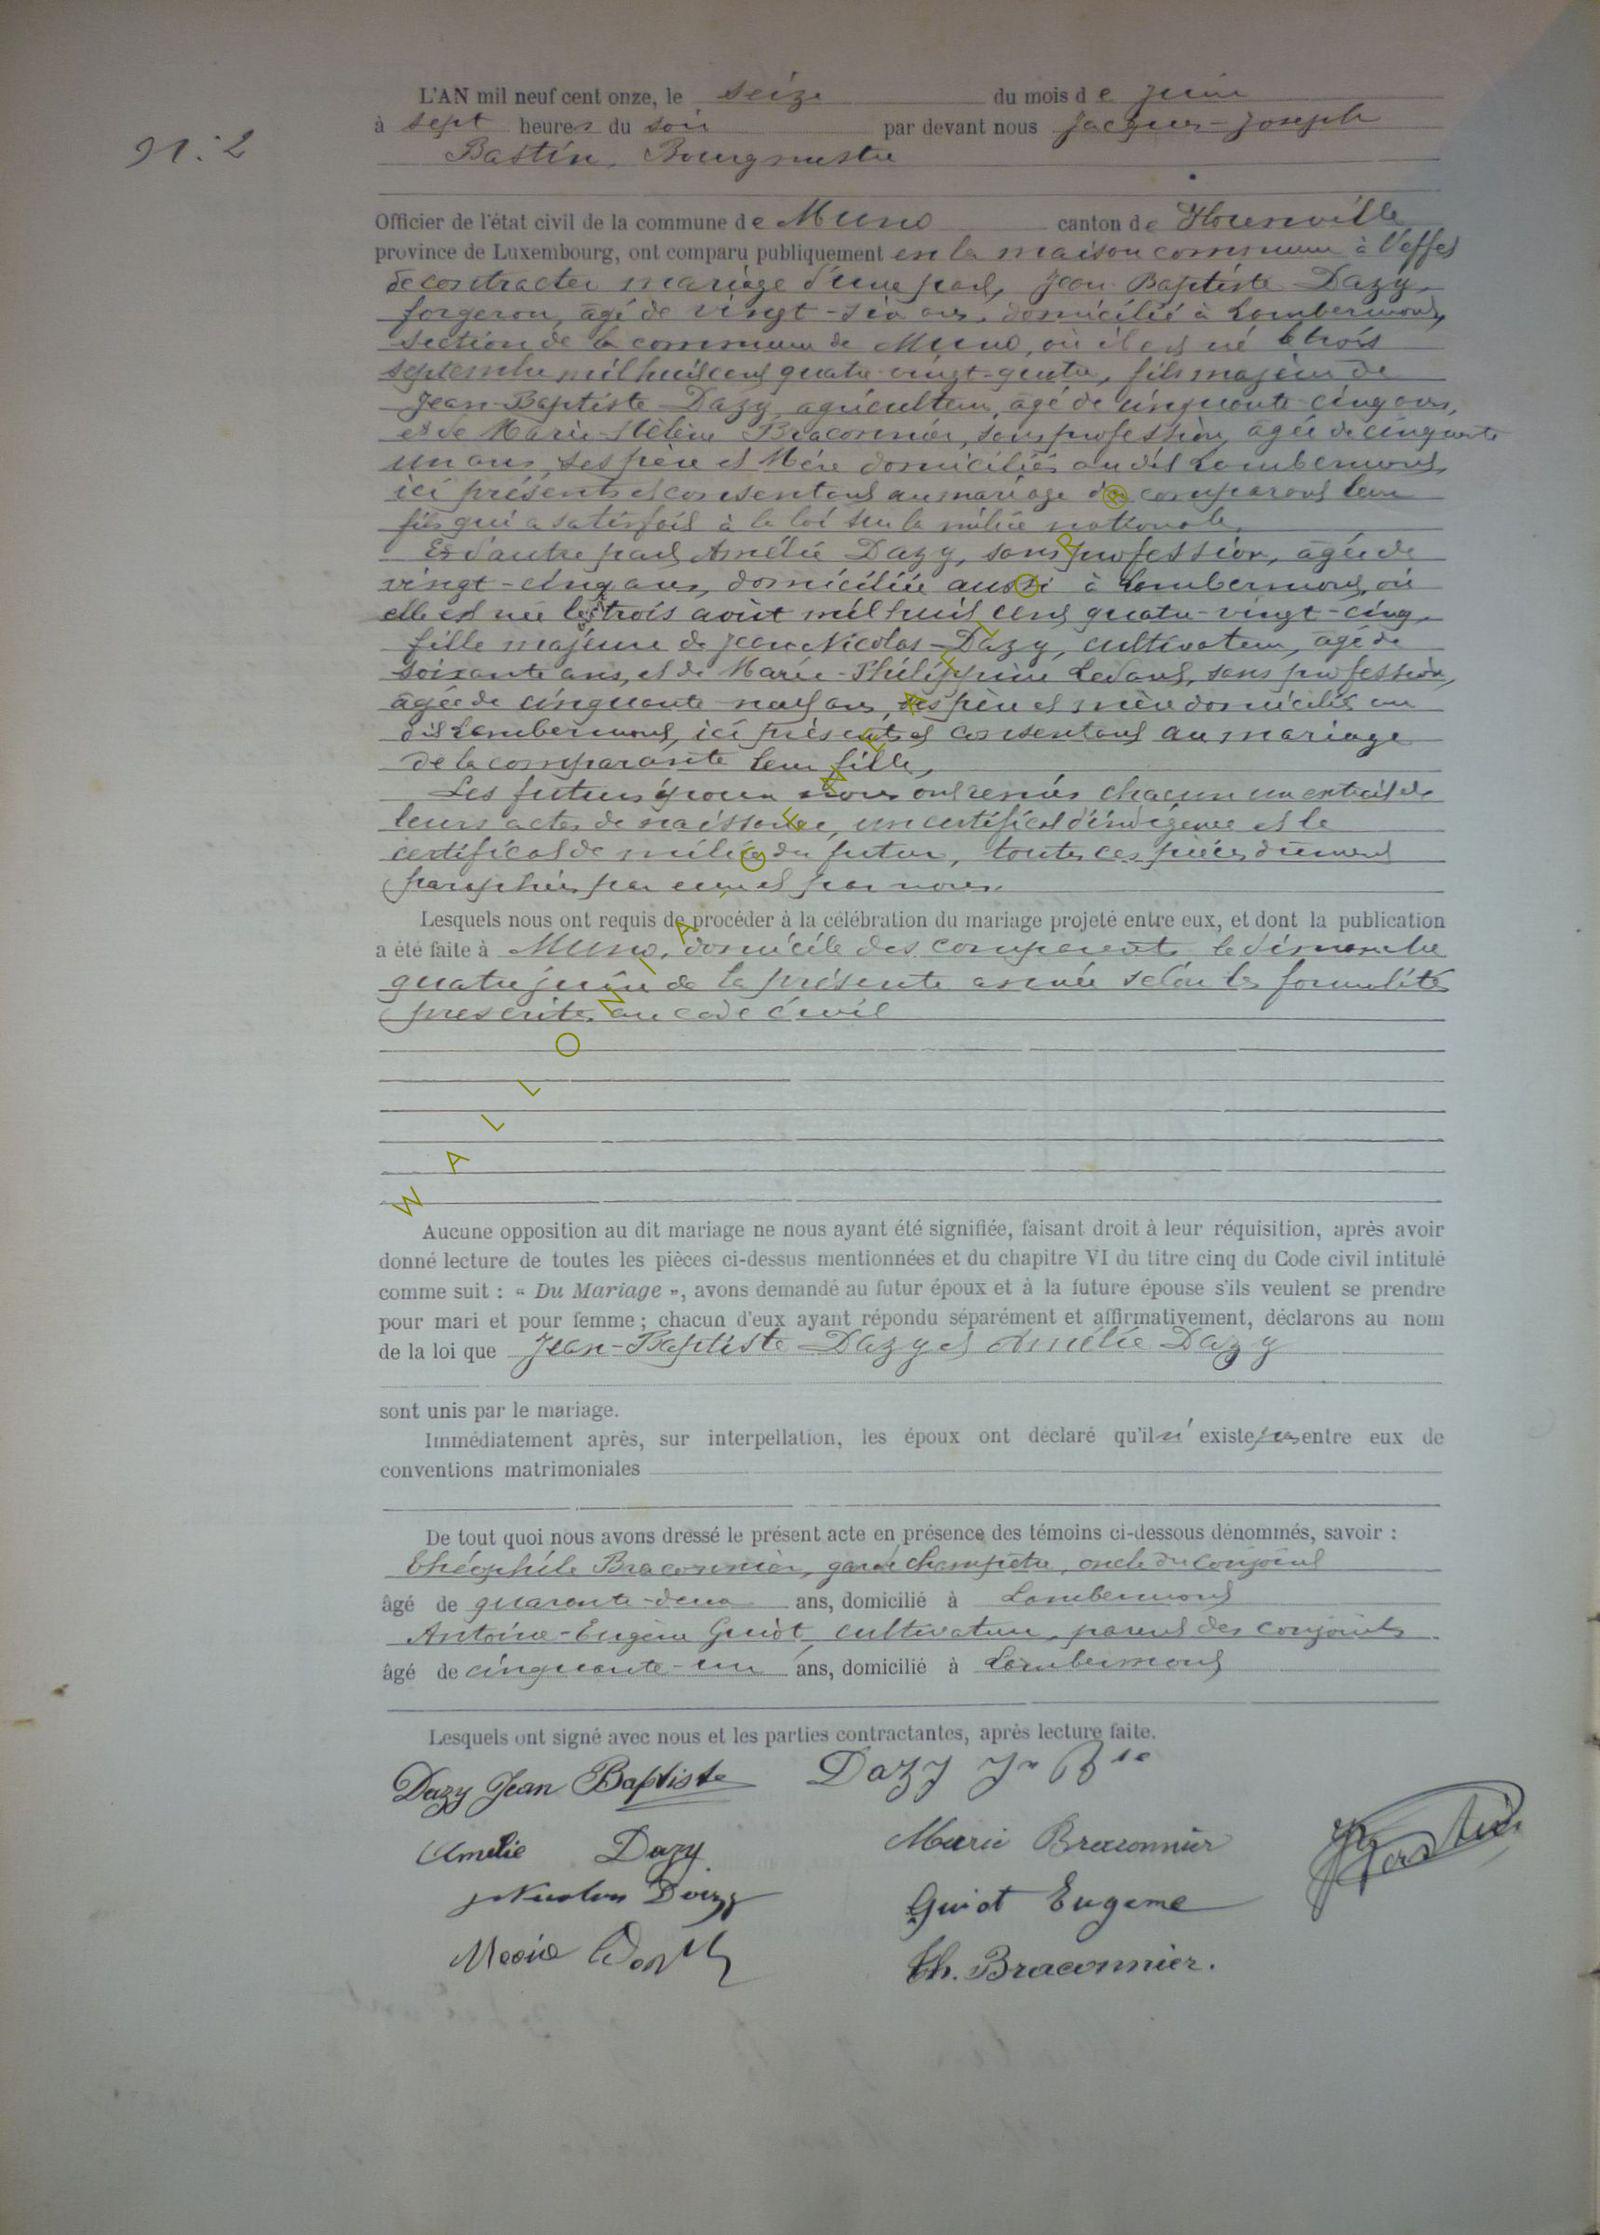 N: 2
L'AN mil neuf cent onze, le seize du mois de juin
à sept heures du soir par devant nous Jacques-Joseph
Bastin, Bourgmestre
Officier de l'état civil de la commune de Muno canton de Florenville
province de Luxembourg, ont comparu publiquement en la maison commune à l'effet
de contracter mariage d'une part, Jean Baptiste Dazy,
forgeron, âgé de vingt-six ans, domicilié à Lambermont,
section de la commune de Muno, où il est né le trois
septembre mil huit cent quatre-vingt-quatre, fils majeur de
Jean-Baptiste Dazy, agriculteur, âgé de cinquante-cinq ans,
et de Marie-Hélène Braconnier, sans profession, âgée de cinquante
un ans, ses père et Mère domiciliés au dit Lambermont,
ici présents et consentant au mariage du comparant leur
fils qui a satisfait à la loi sur la milice nationale.
Et d'autre part Amélie Dazy, sans profession, âgée de
vingt-cinq ans, domiciliée aussi à Lambermont, où
elle est née le trois août mil huit cent quatre-vingt-cinq,
fille majeure de Jean Nicolas Dazy, cultivateur, âgé de
soixante ans, et de Marie-Philippine Ledant, sans profession,
âgée de cinquante neuf ans, ses père et mère domiciliés au
dit Lambermont, ici présents et consentant au mariage
de la comparante leur fille,
Les futurs époux nous ont remis chacun un extrait de
leurs actes de naissance, un certificat d'indigence et le
certificat de milice du futur, toutes ces pièces dûment
paraphées par eux et par nous.
Lesquels nous ont requis de procéder à la célébration du mariage projeté entre eux, et dont la publication
a été faite à Muno, domicile des comparants, le dimanche
quatre juin de la présente année selon les formalités
prescrites au code civil
Aucune opposition au dit mariage ne nous ayant été signifiée, faisant droit à leur réquisition, après avoir
donné lecture de toutes les pièces ci-dessus mentionnées et du chapitre VI du titre cinq du Code civil intitulé
comme suit : « Du Mariage », avons demandé au futur époux et à la future épouse s'ils veulent se prendre
pour mari et pour femme ; chacun d'eux ayant répondu séparément et affirmativement, déclarons au nom
de la loi que Jean-Baptiste Dazy et Amélie Dazy
sont unis par le mariage.
Immédiatement après, sur interpellation, les époux ont déclaré qu'il n'existe pas entre eux de
conventions matrimoniales
De tout quoi nous avons dressé le présent acte en présence des témoins ci-dessous dénommés, savoir :
Théophile Braconnier, garde champêtre, oncle du conjoint
âgé de quarante-deux ans, domicilié à Lambermont
Antoine-Eugène Guiot, cultivateur, parent des conjoints
âgé de cinquante-un ans, domicilié à Lambermont
Lesquels ont signé avec nous et les parties contractantes, après lecture faite.
Dazy Jean Baptiste Dazy Jn Bte
Amélie Dazy Marie Braconnier
JNicolas Dazy Guiot Eugene
Marie Th. Braconnier.
JJBastin
WALLONIA, GENEALOR®